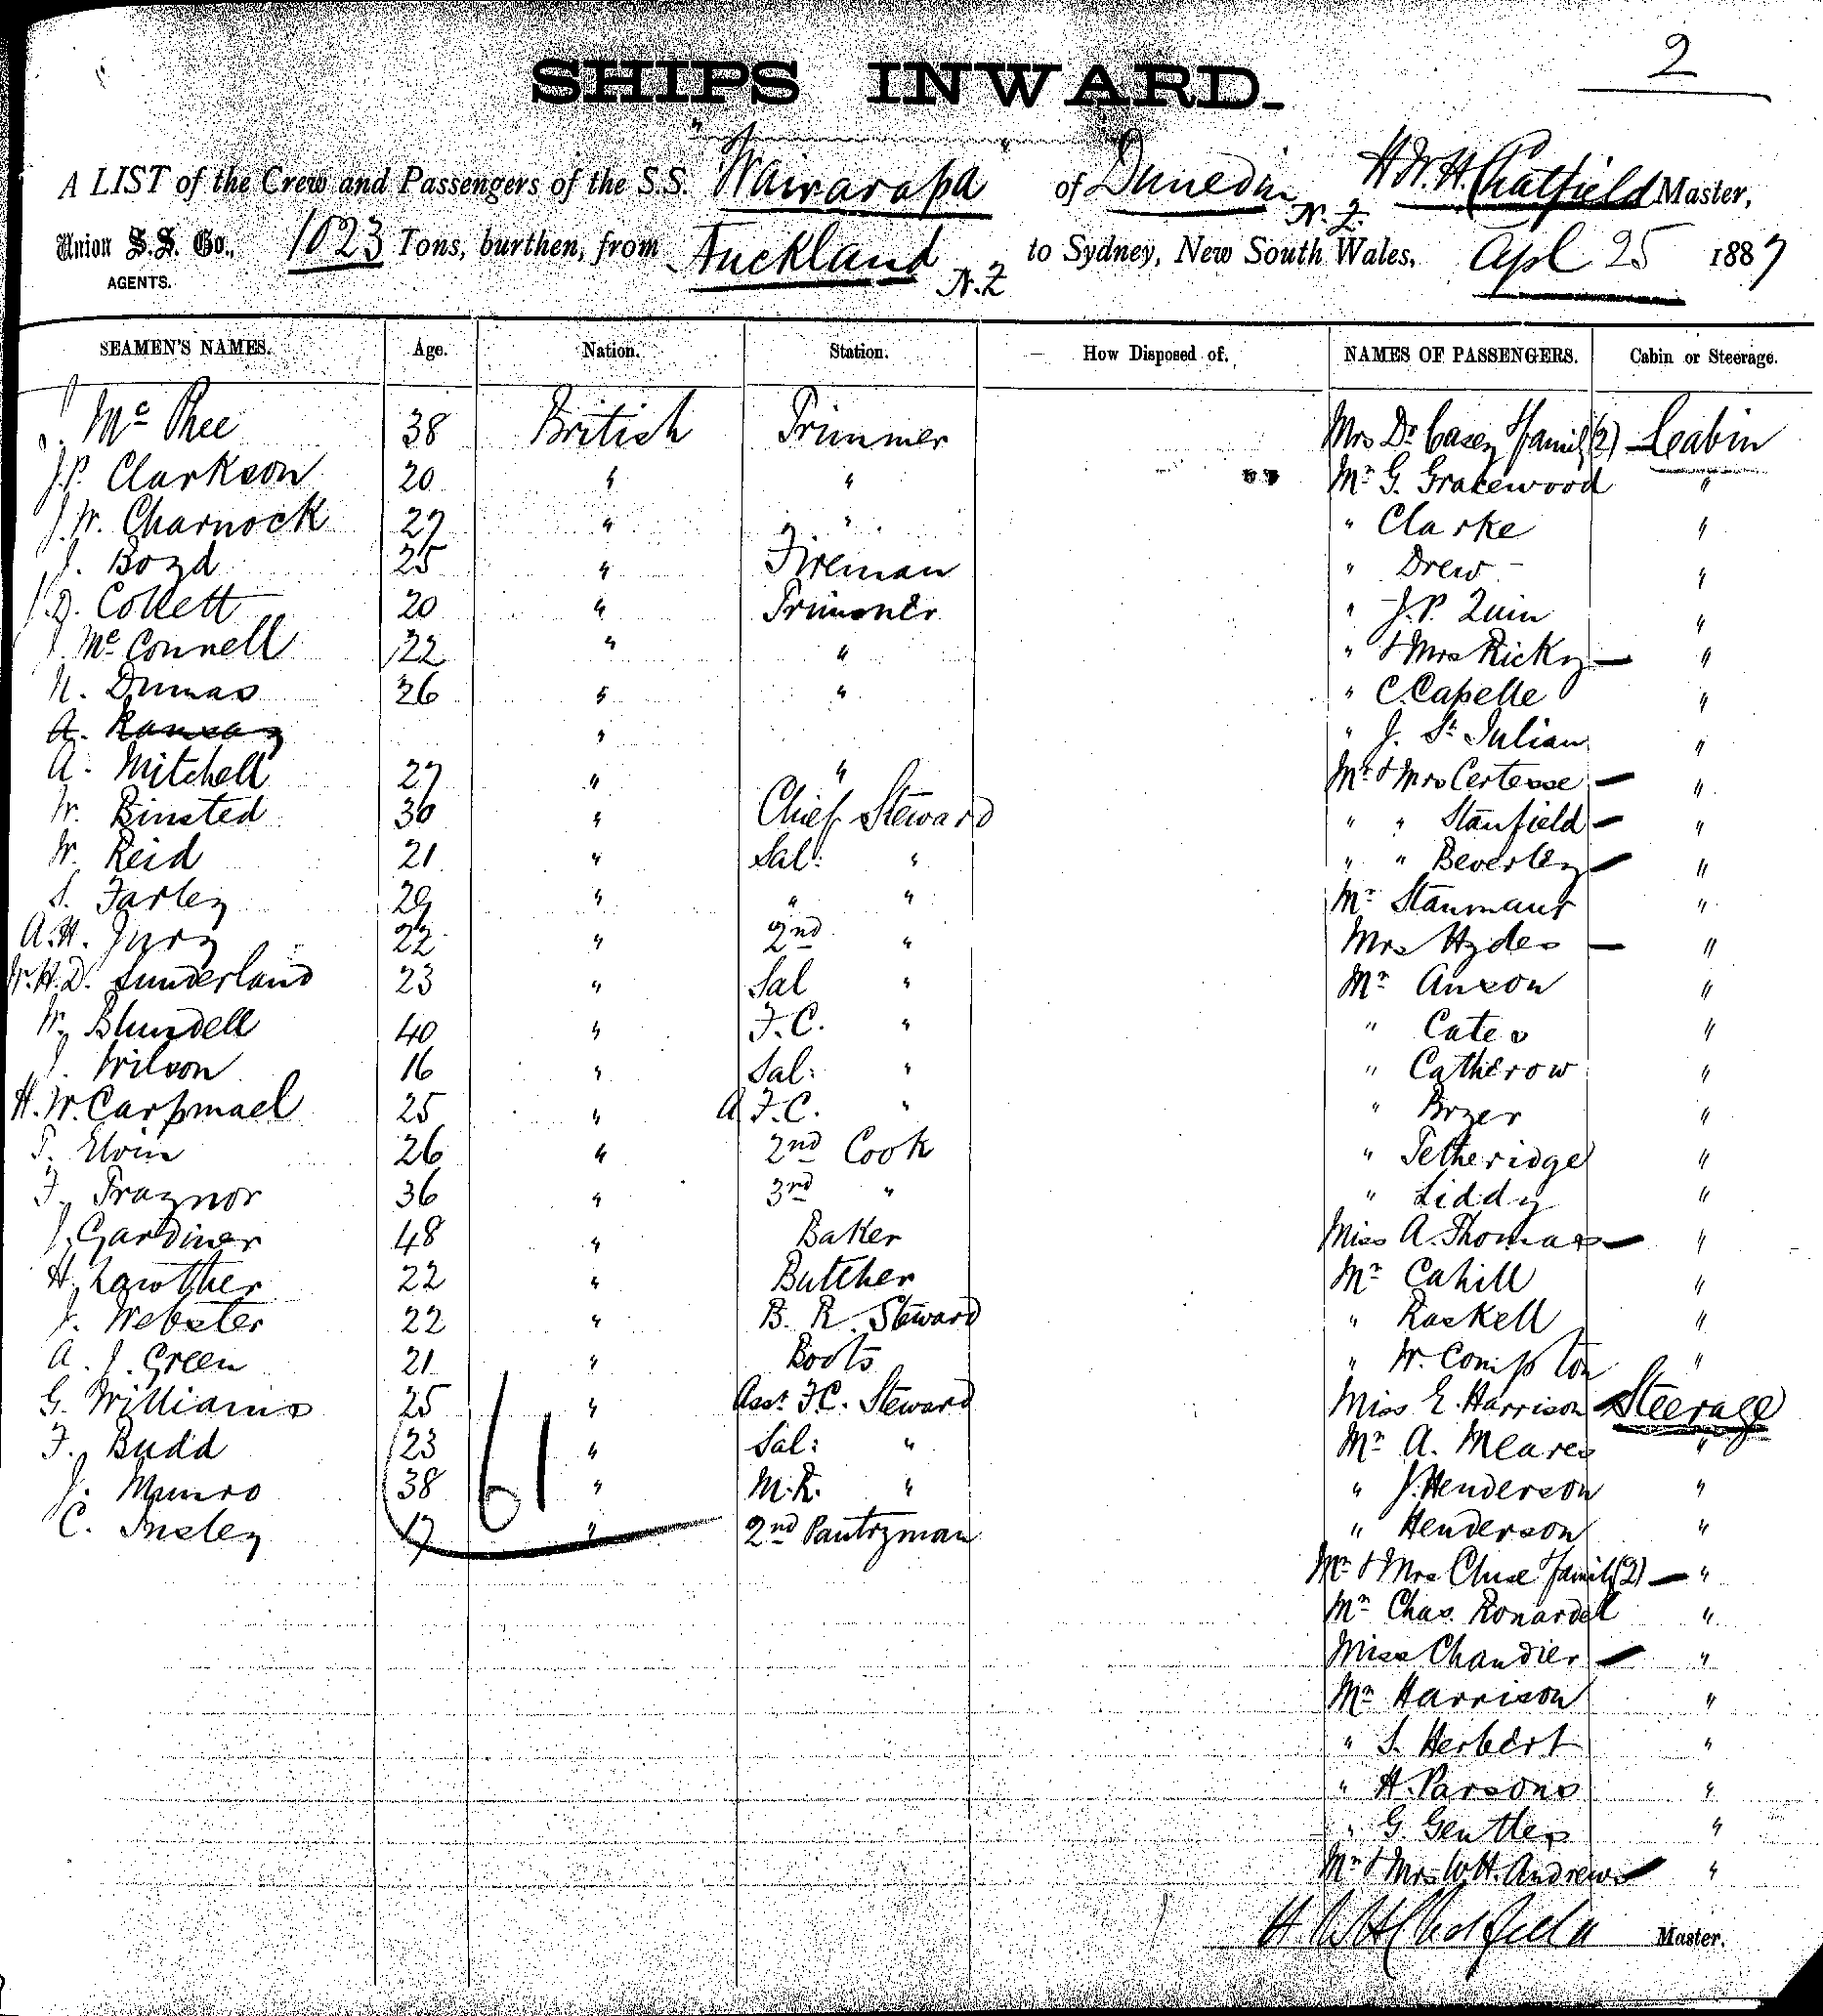 2
SHIPS INWARD.
A LIST of the Crew and Passengers of the S.S. "Wairarapa" of Dunedin N.Z. H.W.H. Chatfield Master,
Union S.S. Co., 1023 Tons, burthen, from Auckland N.Z to Sydney, New South Wales, Apl 25 1887
AGENTS.
SEAMEN'S NAMES. Age. Nation. Station. How Disposed of. NAMES OF PASSENGERS. Cabin or Steerage.
J. McPhee 38 British Trimmer Mrs Dr Casey & family (2) — Cabin
J.P. Clarkson 20 " " Mr G. Gracewood "
J.W. Charnock 27 " " " Clarke "
J. Boyd 25 " Fireman " Drew - "
J.D. Collett 20 " Trimmer " J.P. Quin "
J. McConnell 22 " " " & Mrs Ricky — "
N. Dumas 26 " " " C. Capelle "
A. Ramsay " " J. St Julian "
A. Mitchell 27 " " Mr & Mrs Certesse — "
W. Binsted 30 " Chief Steward " " Stanfield — "
W. Reid 21 " Sal: " " " Beverley — "
S. Farley 29 " " " Mr Stanmaur "
A.H. Jury 22 " 2nd " Mrs Hydes — "
W.H.D. Sunderland 23 " Sal " Mr Anson "
W. Blundell 40 " F.C. " " Cates "
J. Wilson 16 " Sal: " " Catherow "
H.W. Carpmael 25 " A F.C. " " Bryer "
T. Elvin 26 " 2nd Cook " Tetheridge "
F. Traynor 36 " 3rd " " Liddy "
J. Gardiner 48 " Baker Miss A. Thomas — "
H. Lowther 22 " Butcher Mr Cahill "
J. Webster 22 " B. R. Steward " Raskell "
A. J. Green 21 " Boots " W. Compton "
G. Williams 25 " Asst F.C. Steward Miss E. Harrison — Steerage
F. Budd 23 " Sal: " Mr A. Meares "
J. Munro 38 61 " M.R. " " J. Henderson "
C. Insley 17 " 2nd Pantryman " Henderson "
Mr & Mrs Cluse & family (2) — "
Mr Chas. Ronardel "
Miss Chandier — "
Mr Harrison "
" S. Herbert "
" H. Parsons "
" G. Gentles "
Mr & Mrs W.H. Andrews — "
H W H Chatfield Master.